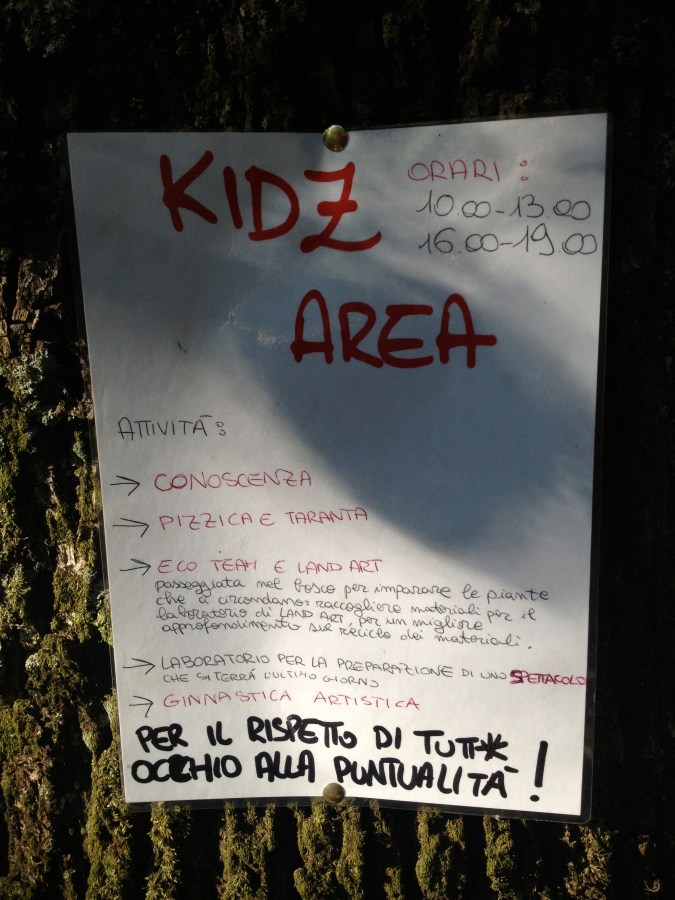 KIDZ
AREA
ORARI:
10.00-13.00
16.00-19.00
ATTIVITÀ:
→ CONOSCENZA
→ PIZZICA E TARANTA
→ ECO TEAM E LAND ART
passeggiata nel bosco per imparare le piante
che ci circondano: raccogliere materiali per il
laboratorio di LAND ART, per un migliore
approfondimento sul riciclo dei materiali.
→ LABORATORIO PER LA PREPARAZIONE DI UNO SPETTACOLO
CHE SI TERRÁ L'ULTIMO GIORNO
→ GINNASTICA ARTISTICA
PER IL RISPETTO DI TUTT*
OCCHIO ALLA PUNTUALITÀ!